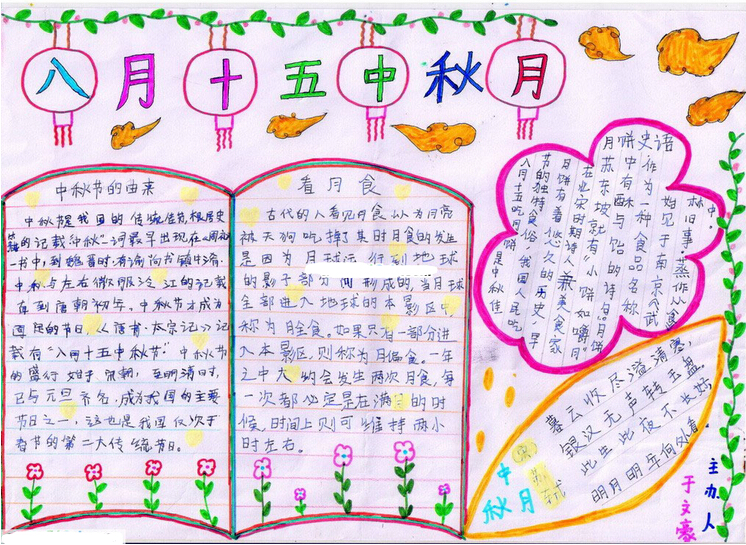 八月十五中秋月
中秋节的由来
中秋节是我国的传统佳节,根据史
籍的记载"中秋"一词最早出现在《周礼》
一书中,到魏晋时,有谕尚书镇牛渚,
中秋 与左右微服泛江的记载
直到唐朝初年,中秋节才成为
固定的节日《唐书·太宗记》记
载有"八月十五中秋节"中秋节
的盛行始于宋朝,至明清时,
已与元旦齐名,成为我国的主要
节日之一,这也是我国仅次于
春节的第二大传统节日。
看月食
古代的人看见月食认为月亮
被天狗吃掉其时月食的发生
是因为月球运行到地球
的影子部分 形成的,当月球
全部进入地球的本影区中
称为月全食。如果只有一部分进
入本影区,则称为月偏食。一年
之中大约会发生两次月食,每
一次都必定是在满月的时
候,时间上则可维持两小
时左右。
月饼史语
八月十五吃月饼是中秋佳
节的独特食俗,我国人民吃
月饼有着悠久的历史,早
在北宋时期诗人兼美食家
苏东坡就有"小饼如嚼月
中有酥与饴"的诗句"月饼"
作为一种食品名称
始见于南京《武
林旧事·蒸作从食
中。
暮云收尽溢清寒,
银汉无声转玉盘
此生此夜不长好
明月明年何处看
中秋月
宋 苏轼
主办人
于文豪